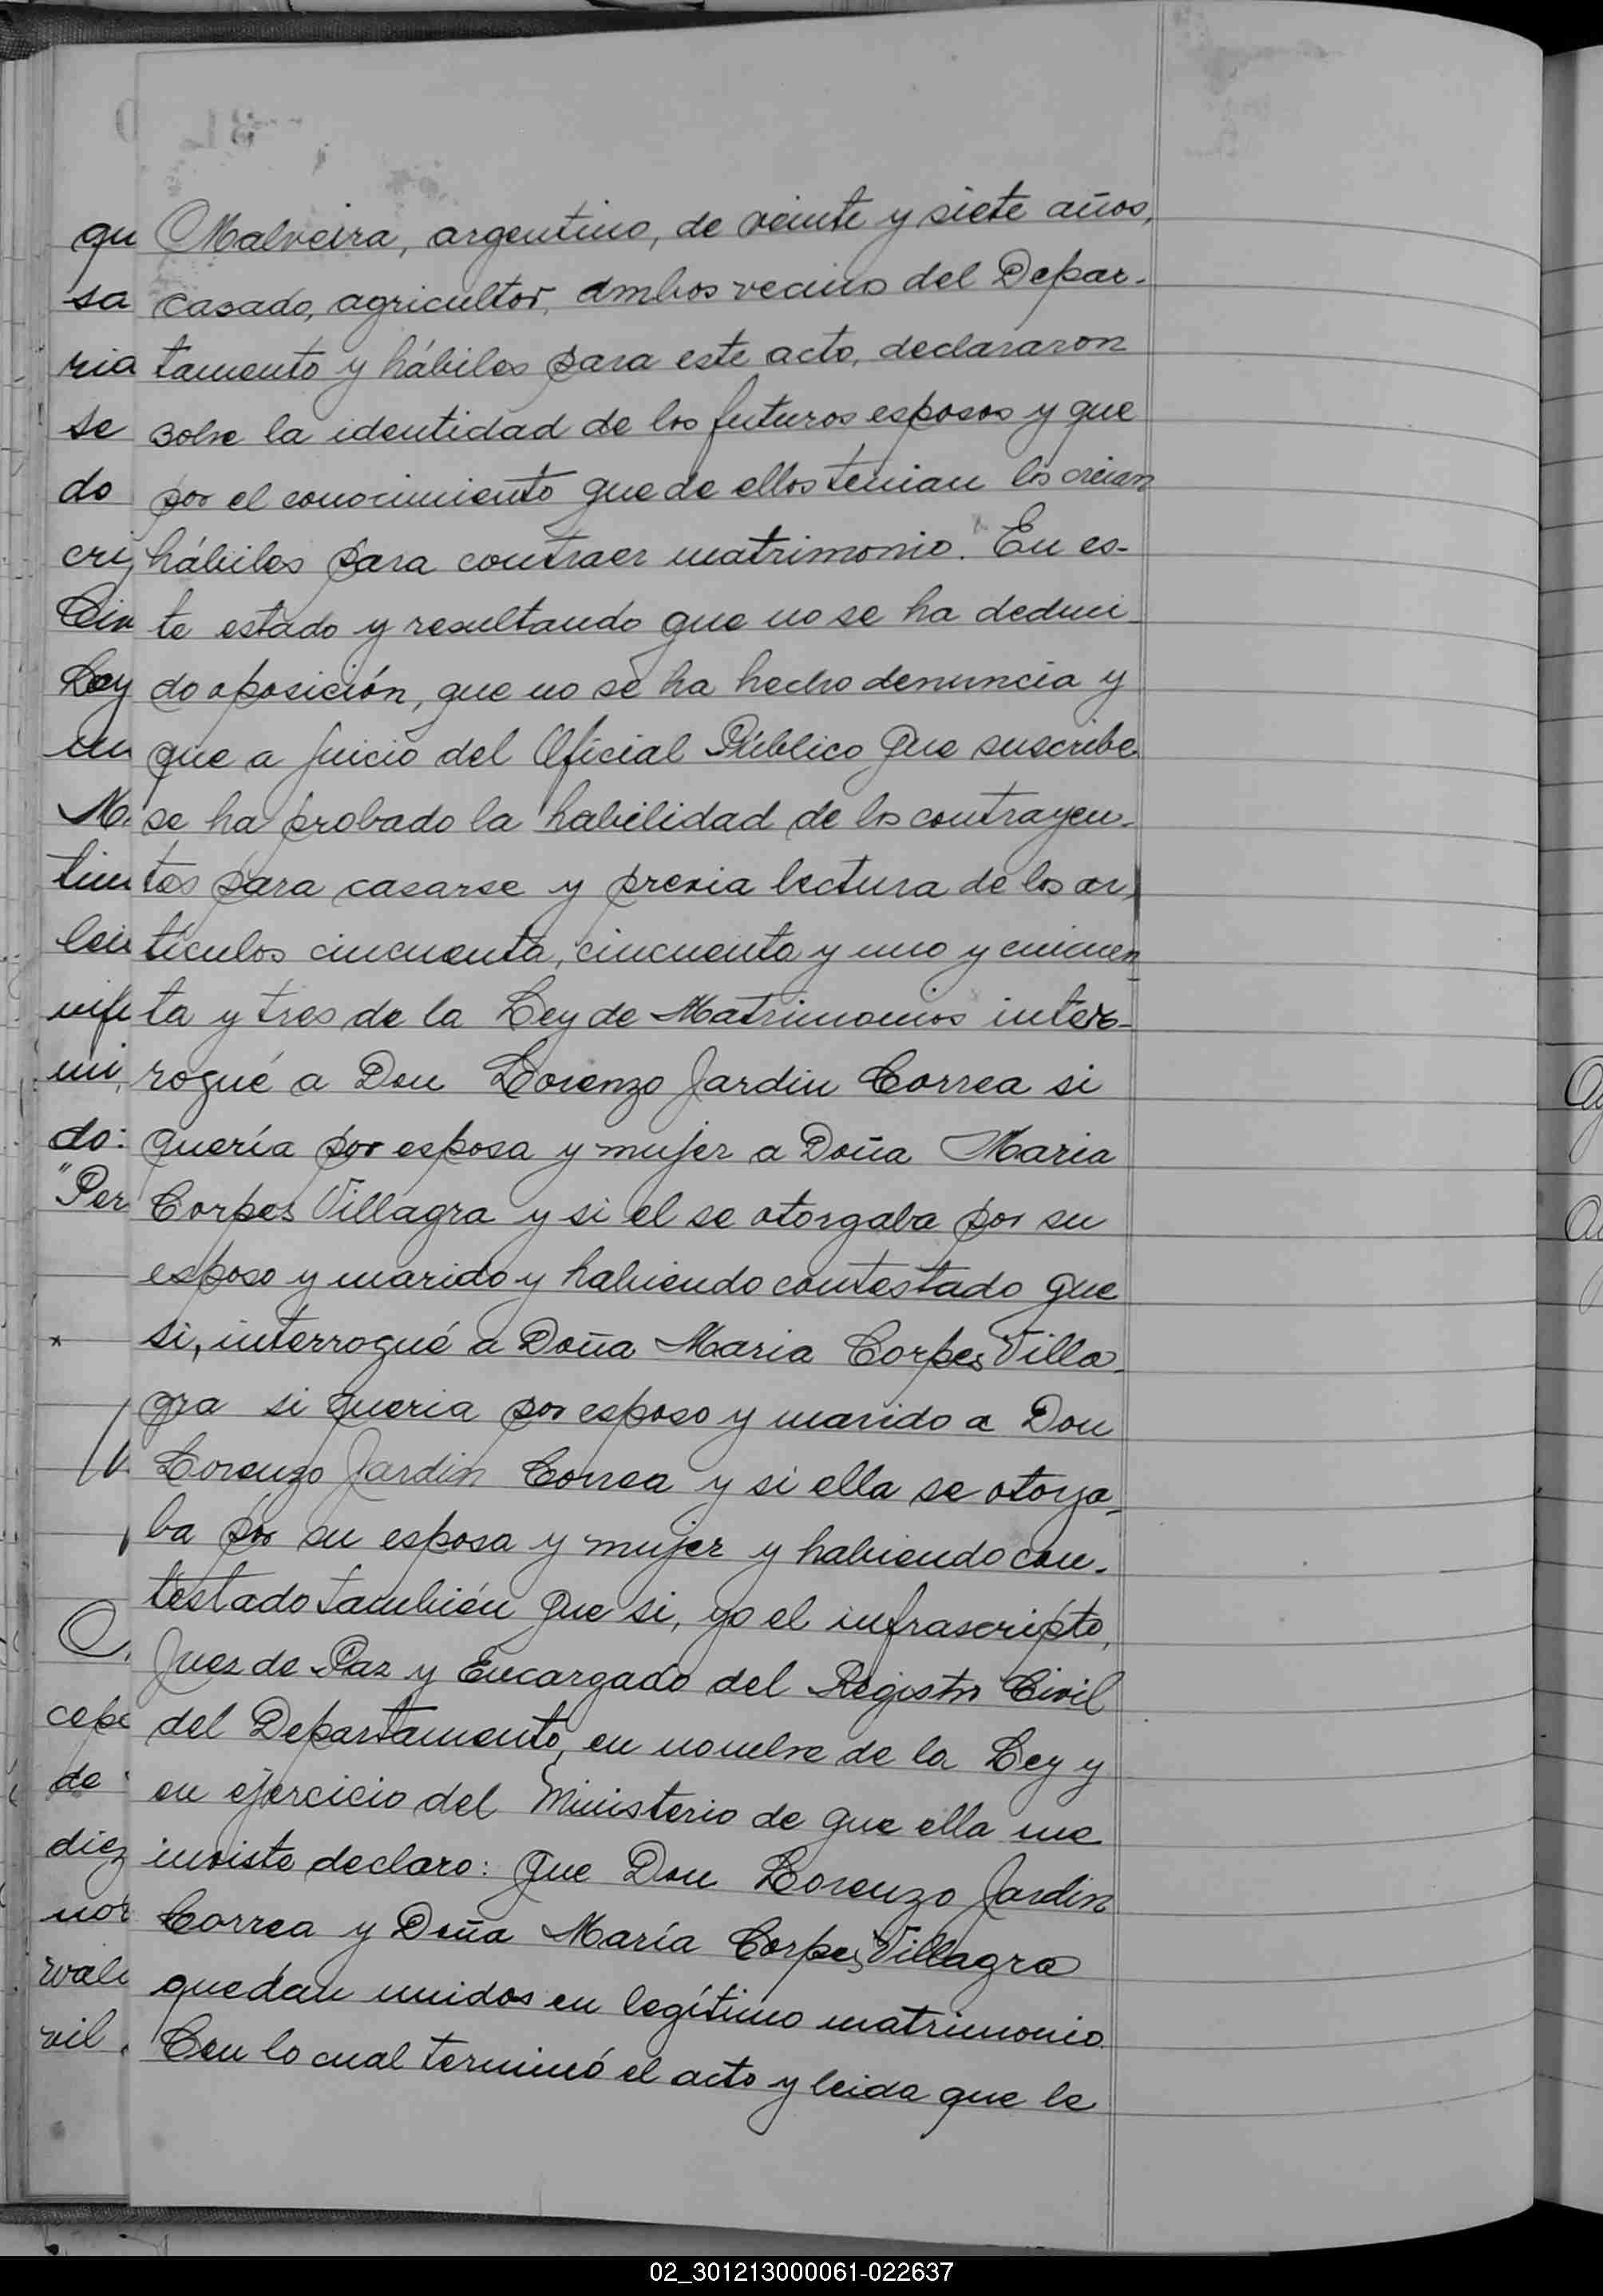 Malveira, argentino, de veinte y siete años,
casado, agricultor, ambos vecino del Depar-
tamento y hábiles para este acto, declararon
sobre la identidad de los futuros esposos y que
por el conocimiento que de ellos tenian los creian
hábiles para contraer matrimonio. En es-
te estado y resultando que no se ha deduci-
do oposición, que no se ha hecho denuncia y
que a juicio del Oficial Público que suscribe
se ha probado la habilidad de los contrayen-
tes para casarse y previa lectura de los ar-
tículos cincuenta, cincuenta y uno y cincuen
ta y tres de la Ley de Matrimonios inter-
rogué a Don Lorenzo Jardin Correa si
quería por esposa y mujer a Doña Maria
Corpes Villagra y si el se otorgaba por su
esposo y marido y habiendo contestado que
si, interrogué a Doña Maria Corpes Villa-
gra si queria por esposo y marido a Don
Lorenzo Jardin Correa y si ella se otorga-
ba por su esposa y mujer y habiendo con-
testado también que si, yo el infrascripto,
Juez de Paz y Encargado del Registro Civil
del Departamento, en nombre de la Ley y
en ejercicio del Ministerio de que ella me
inviste declaro: Que Don Lorenzo Jardin
Correa y Doña María Corpes Villagra
quedan unidos en legítimo matrimonio.
Con lo cual terminó el acto y leida que le
qu
sa
ria
se
do
cri
Civ
Ley
un
M.
tim
lein
nife
mi,
do:
"Per
cepc
de
diez
nor
vale
vil.
02_301213000061-022637